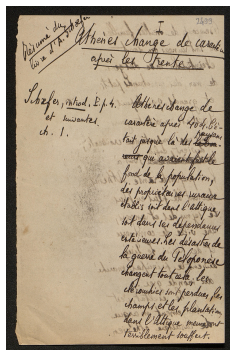 Résumé du
livre d'A. Schaefer
I
Athènes change de caractère
après les Trente.
Schaefer, introd. I, p. 4.
et suivantes
ch. 1.
Athènes change de
caractère après 404. C'é-
tait jusque là des paysans
qui avaient fait le
fond de la population,
des propriétaires ruraux
établis soit dans l'Attique
soit dans ses dépendances
extérieures. Les désastres de
la guerre du Péloponèse
changent tout cela. Les
clérouchies sont perdues, les
champs et les plantations
dans l'Attique même ont
terriblement souffert.